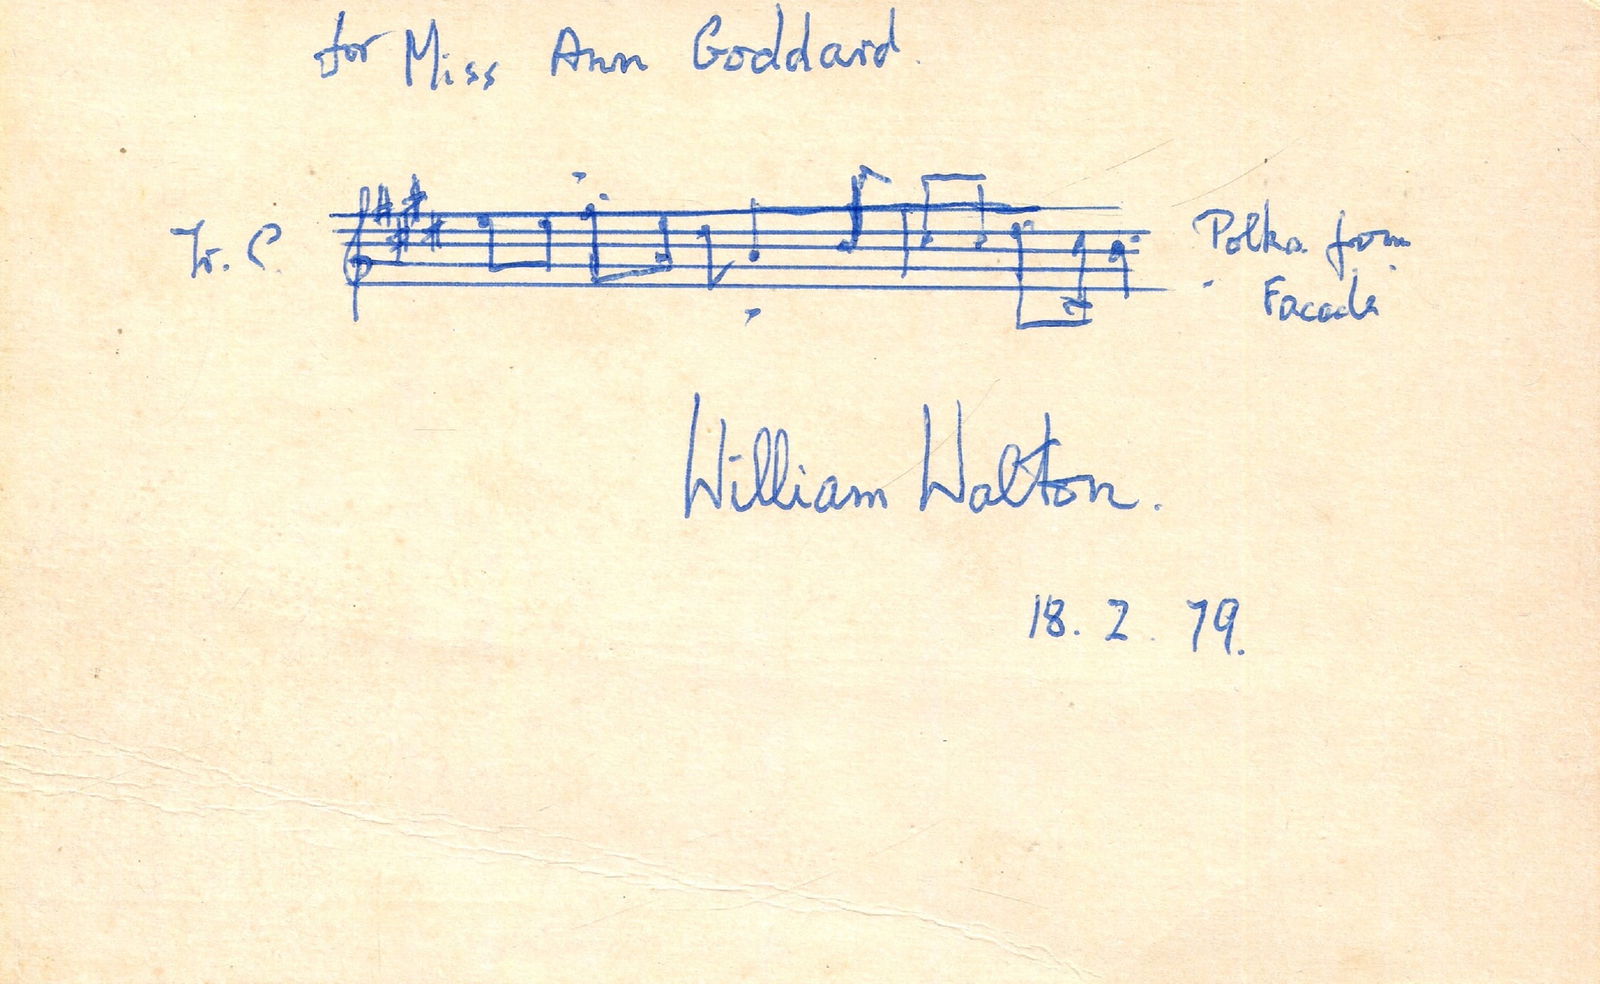 for Miss Ann Goddard.
Tr. C
Polka from
Facade
William Walton.
18. 2. 79.